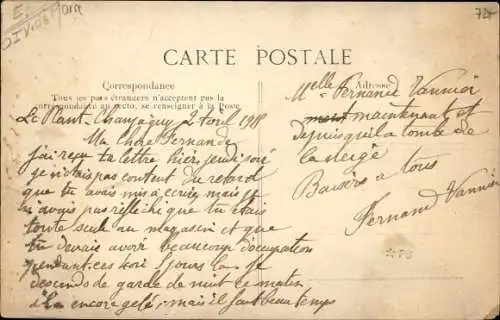 724
CARTE POSTALE
Correspondance
Tous les pays étrangers n'acceptent pas la
correspondance au recto, se renseigner à la Poste
Adresse
Le Plant Champigny 2 Avril 1918
Ma Chère Fernande
j'ai reçu ta lettre hier jeudi soir
je n'étais pas content du retard
que tu avais mis a écrire mais je
n'avais pas réfléchi que tu étais
toute seule au magasin et que
tu devais avoir beaucoup d'occupation
pendant ces trois jours la. Je
descends de garde de nuit ce matin
il a encore gelé, mais il fait beau temps
Melle Fernande Vannier
maintenant et
depuis qu'il a tombé de
la neige
Baisers a tous
Fernand Vannier